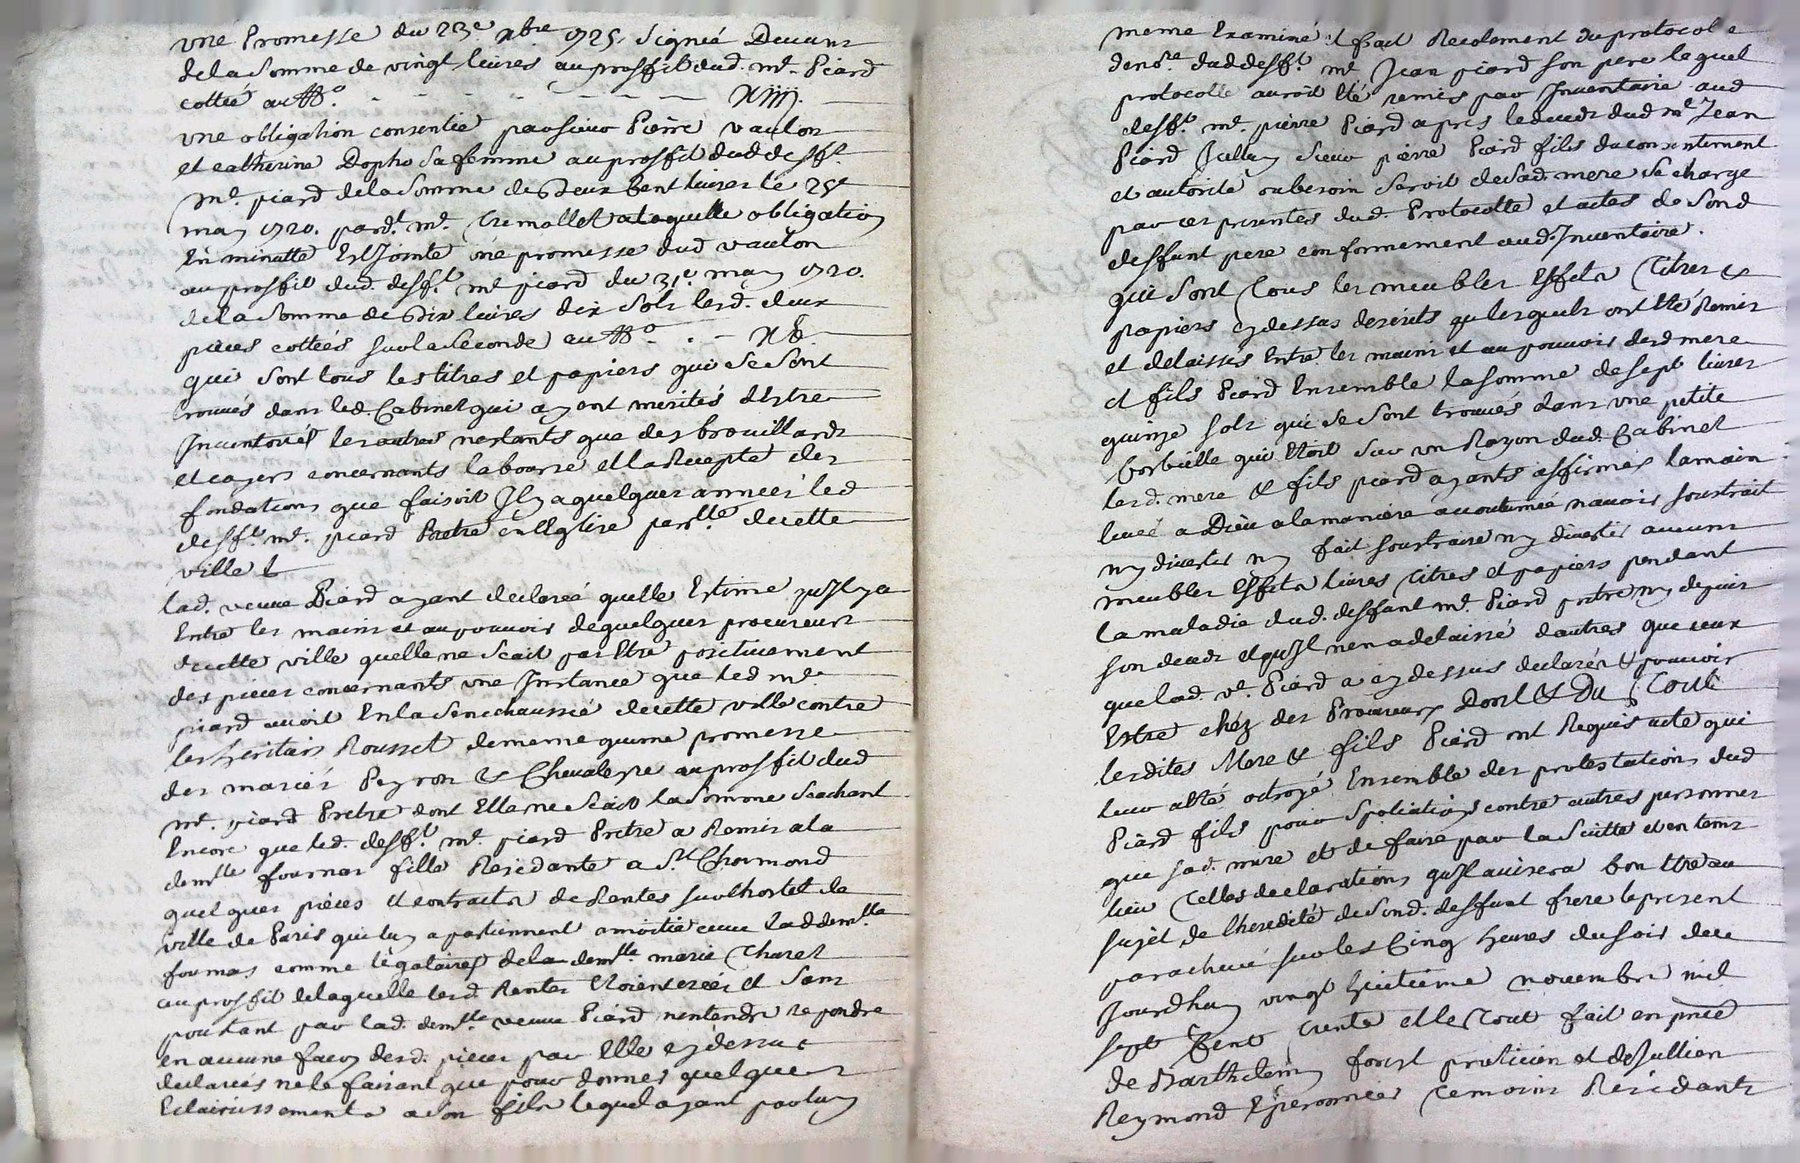 une Promesse du 23e xbre 1725. signée Duuant
de la somme de vingt livres au proffit dud. mre Piard
cottée au No. - - - - - - - XIIIJ.
une obligation consentie par sieur Pierre vaulon
et catherine Dopho sa femme au proffit dud defft.
Mre. piard de la somme de deux Cent livres le 25e
may 1720. pard.t Me. Cremollet a laquelle obligation
En minutte Est Jointe une promesse dud vaulon
au proffit dud. deff.t me piard du 31e. may 1720.
de la somme de dix livres dix sols lesd. deux
pieces cottées sur la seconde au No. . - XV.
qui sont tous les titres et papiers qui se sont
trouvés dans led. Cabinet qui ayent merités d'Estre
Inventoriés les autres nestants que des brouillards
et cayers concernants la bource et la Recepte des
fondations que faisoit Il y a quelques années led
deff.t me. piard Pretre en l'Eglise parolle. de cette
ville &
lad. veuve Piard ayant declareé quelle Estime qu'Il y a
Entre les mains et au pouvoir de quelques procureurs
de cette ville quelle ne scait pas Etre positivement
des pieces concernants une Instance que led me.
piard avoit En la senechaussée de cette ville contre
les heritiers Rousset de meme qu'une promesse
des mariés Peyron & Chevaleyre au proffit dud
me. piard Pretre dont Elle ne scait la somme scachant
Encore que led. deff.t me. piard Pretre a Remis a la
demlle fournas fille Residante a St. Chormond
quelques pieces et contracts de Rentes sur l'hostel de
ville de Paris qui luy apartiennent a moitié avec lad demlle
fournas comme légataires de la demlle marie Charet
au proffit delaquelle lesd. Rentes Etoient creés et sans
pourtant par lad. demlle veuve Piard n'entendre repondre
en aucune façon desd. pieces par Elle cy dessus
declarées ne le faisant que pour donner quelques
Eclaircissements a son fils lequel ayant parluy
meme Examiné & fait Recolement du protocole
de no.re dud deff.t me Jean piard son pere lequel
protocolle auroit Eté remis par Inventaire aud
deff.t me. pierre Piard apres le deceds dud me Jean
Piard Icelluy sieur pierre Piard fils du consentement
et autorité ou besoin seroit de sad. mere se charge
par ces presentes dud. Protocolle et actes de sond
deffunt pere conformement aud. Inventaire.
qui sont tous les meubles Effets Titres &
papiers cy dessus descrits qu lesquels ont Eté Remis
et delaissés Entre les mains et au pouvoir desd mere
et fils Piard Ensemble la somme de sept livres
quinze sols qui se sont trouvés dans une petite
corbeille qui Etoit sur un Rayon dud. Cabinet
lesd. mere & fils piard ayants affirmés la main
leveé a Dieu a la maniere accoutumée n'avoir soustrait
ny diverti ny fait soustraire ny divertir aucuns
meubles Effets livres titres et papiers pendant
la maladie dud. deffunt me. Piard pretre ny depuis
son deceds et qu'Il n'en a delaissé d'autres que ceux
que lad. ve. Piard a cy dessus declarés & pouvoir
Estre chéz des Procureurs Dont & Du Tout
lesdites Mere & fils Piard ont Requis acte qui
leur a Eté octroyé Ensemble des protestations dud
Piard fils pour spoliations contre autres personnes
que sad. mere et de faire par la suitte et en tems
lieu telles declarations qu'Il avisera bon Etre au
sujet de l'heredité de sond. deffunt frere le present
parachevé sur les Cinq heures du soir de ce
Jourdhuy vingt huitieme novembre mil
sept Cent trente et le tout fait en pnce
de Barthelemy forest praticien et de Jullien
Reymond Eperonnier temoins Residants